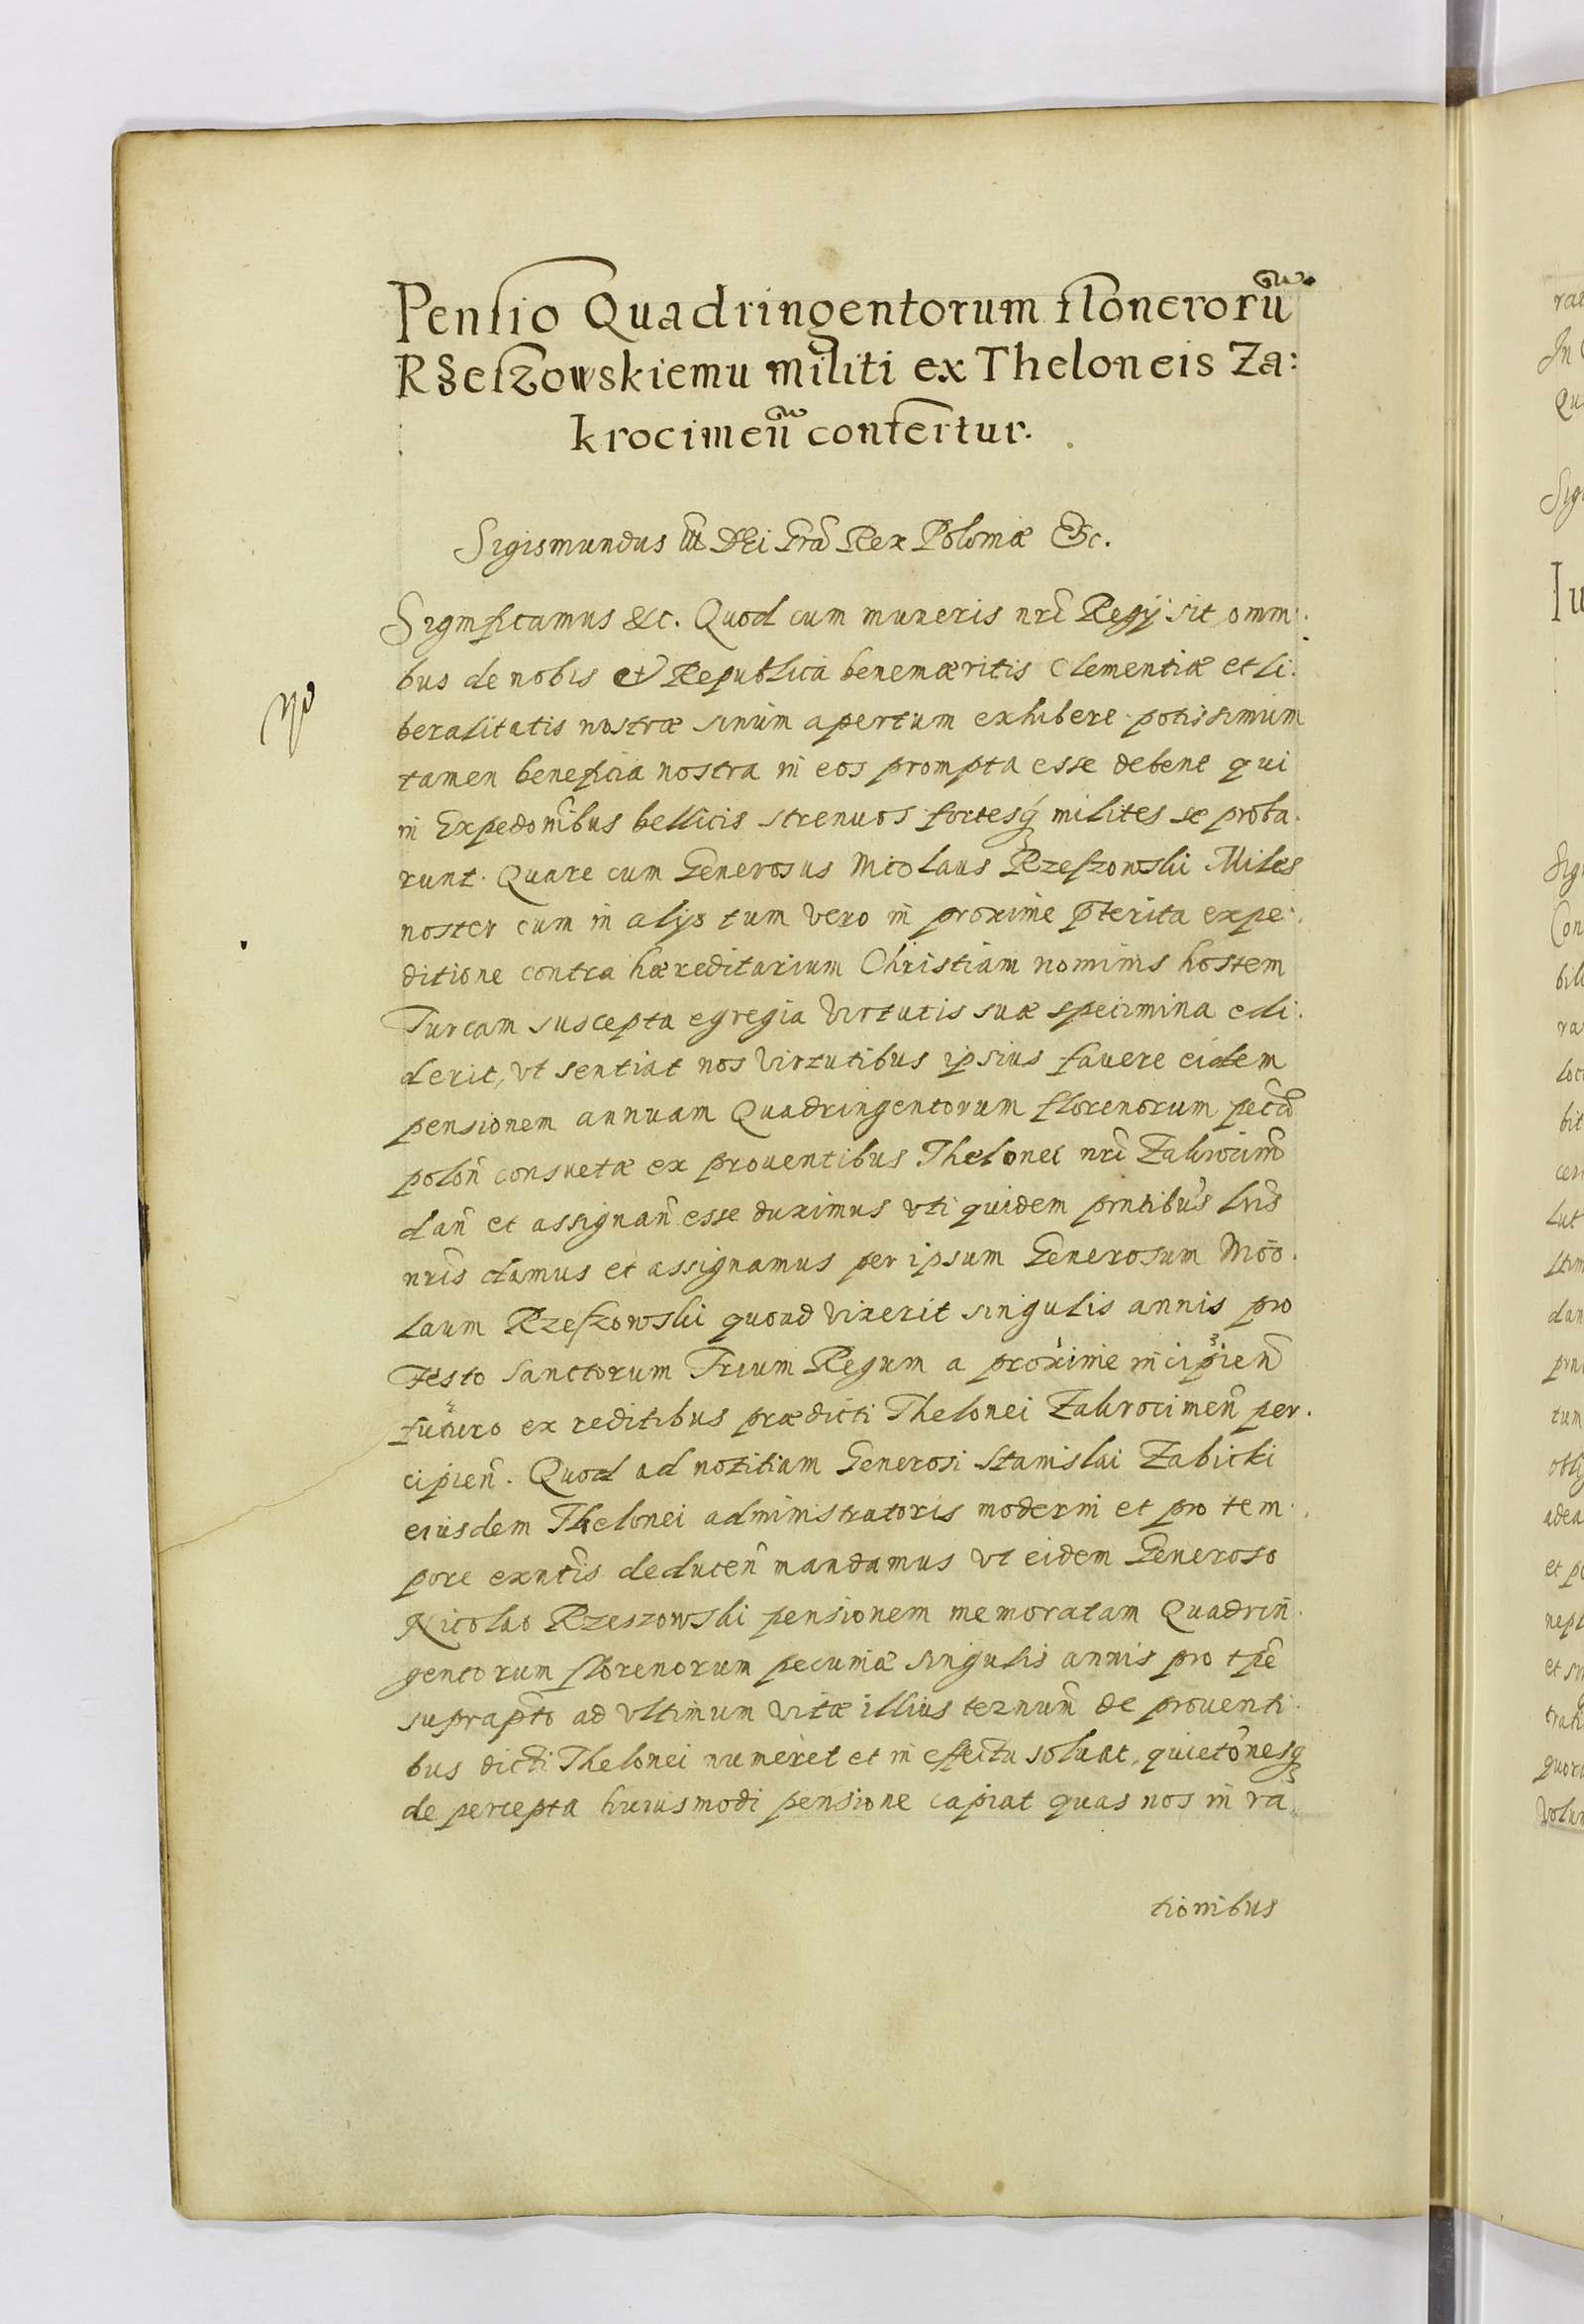 Pensio Quadringentorum flonerorũ
Rzeszowskiemu militi ex Theloneis Za:
krocimeñ confertur.
Sigismundus III DEi Grã Rex Poloniæ Etc.
Significamus &c. Quod cum muneris nrĩ Regij sit omni:
bus de nobis et Republica benemæritis Clementiæ et li:
beralitatis nostræ sinum apertum exhibere potissimum
tamen beneficia nostra in eos prompta esse debent qui
in Expedonĩbus bellicis strenuos fortesq́ milites se proba:
runt. Quare cum Generosus Nicolaus Rzeszowski Miles
noster cum in alijs tum vero in proxime p̃terita expe:
ditione contra hæreditarium Christiani nominis hostem
Turcam suscepta egregia virtutis suæ specimina edi:
derit, vt sentiat nos virtutibus ipsius favere eidem
pensionem annuam Quadringentorum florenorum pecũ
poloñ consuetæ ex prouentibus Thelonei nrĩ Zakrocimeñ
dañ et assignañ esse duximus vti quidem pñtibus lrĩs
nrĩs damus et assignamus per ipsum Generosum Nico:
laum Rzeszowski quoad vixerit singulis annis pro
Festo Sanctorum Trium Regum a proxime incipieñ
futuro ex reditibus prædicti Thelonei Zakrocimeñ per:
cipieñ. Quod ad notitiam Generosi Stanislai Zabicki
eiusdem Thelonei administratoris moderni et pro tem:
pore exñtis deduceñ mandamus vt eidem Generoso
Nicolao Rzeszowski pensionem memoratam Quadrin:
gentorum florenorum pecuniæ singulis annis pro tpẽ
suprap̃to ad vltimum vitæ illius ternũm de prouenti:
bus dicti Thelonei numeret et in effectu soluat, quietõnesq́
de percepta huiusmodi pensione capiat quas nos in ra
tionibus